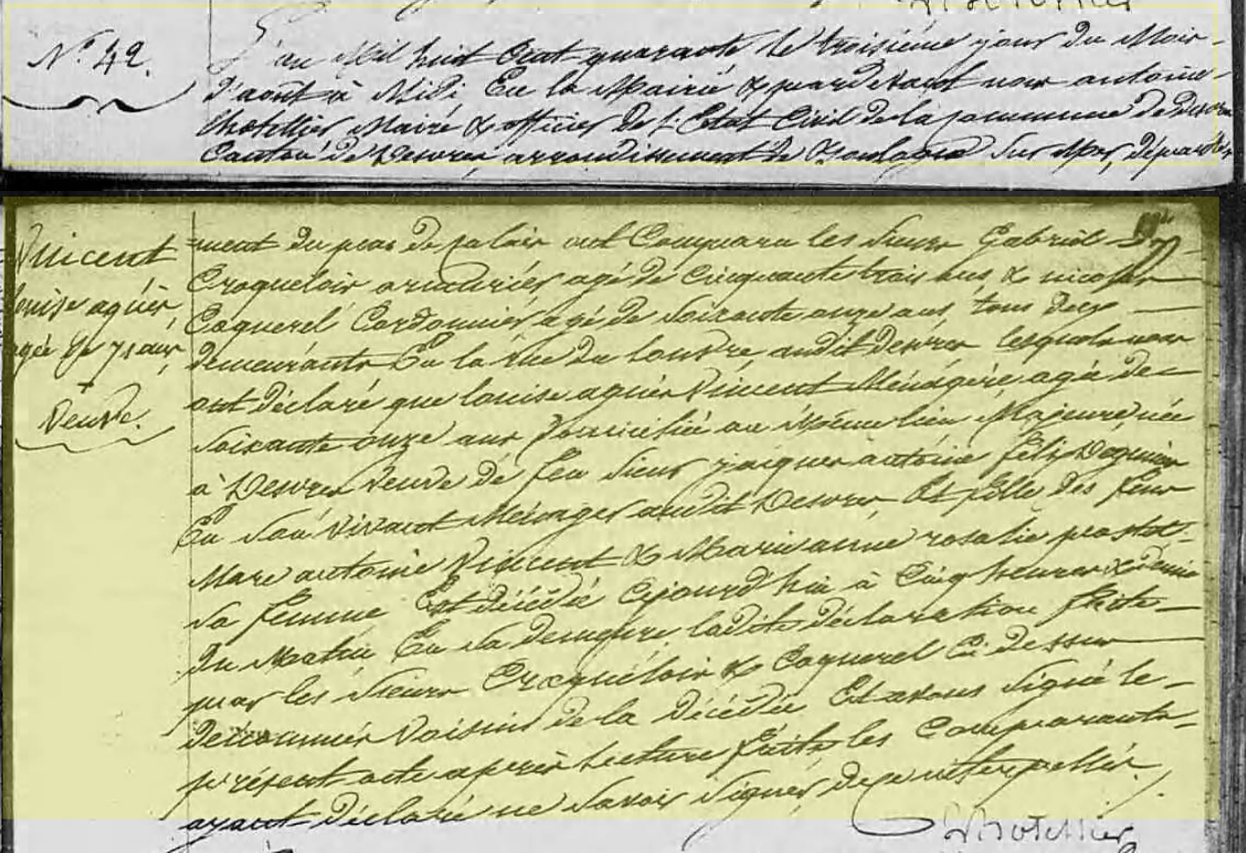 N.° 42.
L'an Mil huit Cent quarante le troisième jour du Mois
d'août à Midi En la Mairie & pardevant nous antoine
Chotellier Maire & officier de l'Etat Civil de la commune de Desvres
Canton de Desvres, arrondissement de Boulogne Sur Mer, départe
Vincent
louise agnès,
agée de 71 ans,
Veuve.
=ment du pas de Calais ont Comparu les Sieurs Gabriel
Croquelois armurier agé de Cinquante trois ans, & nicolas
Coquerel Cordonnier agé de Soixante onze ans, tous deux
demeurants En la rue du louvre audit Desvres lesquels nous
ont déclaré que louise agnès Vincent Ménagère agée de
Soixante onze ans Domiciliée au Même lieu Majeure, née
à Desvres Veuve de feu Sieur antoine félix
En Son Vivant Ménager audit Desvres, Et fille des feus
Marc antoine Vincent & Marie anne rosalie
Sa femme Est décédée Cejourd'hui à Cinq heures & demie
du Matin En Sa demeure ladite déclaration faite
par les Sieurs Croquelois & Coquerel Ci-dessus
dénommés Voisins de la Décédée Et avons Signé le
présent acte après lecture faite, les Comparants
ayant déclaré ne Savoir Signer de ce interpellés.
Chotellier